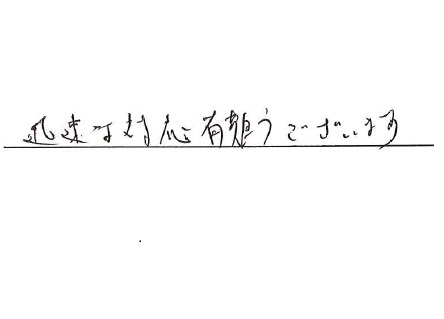 迅速な対応有難うございます